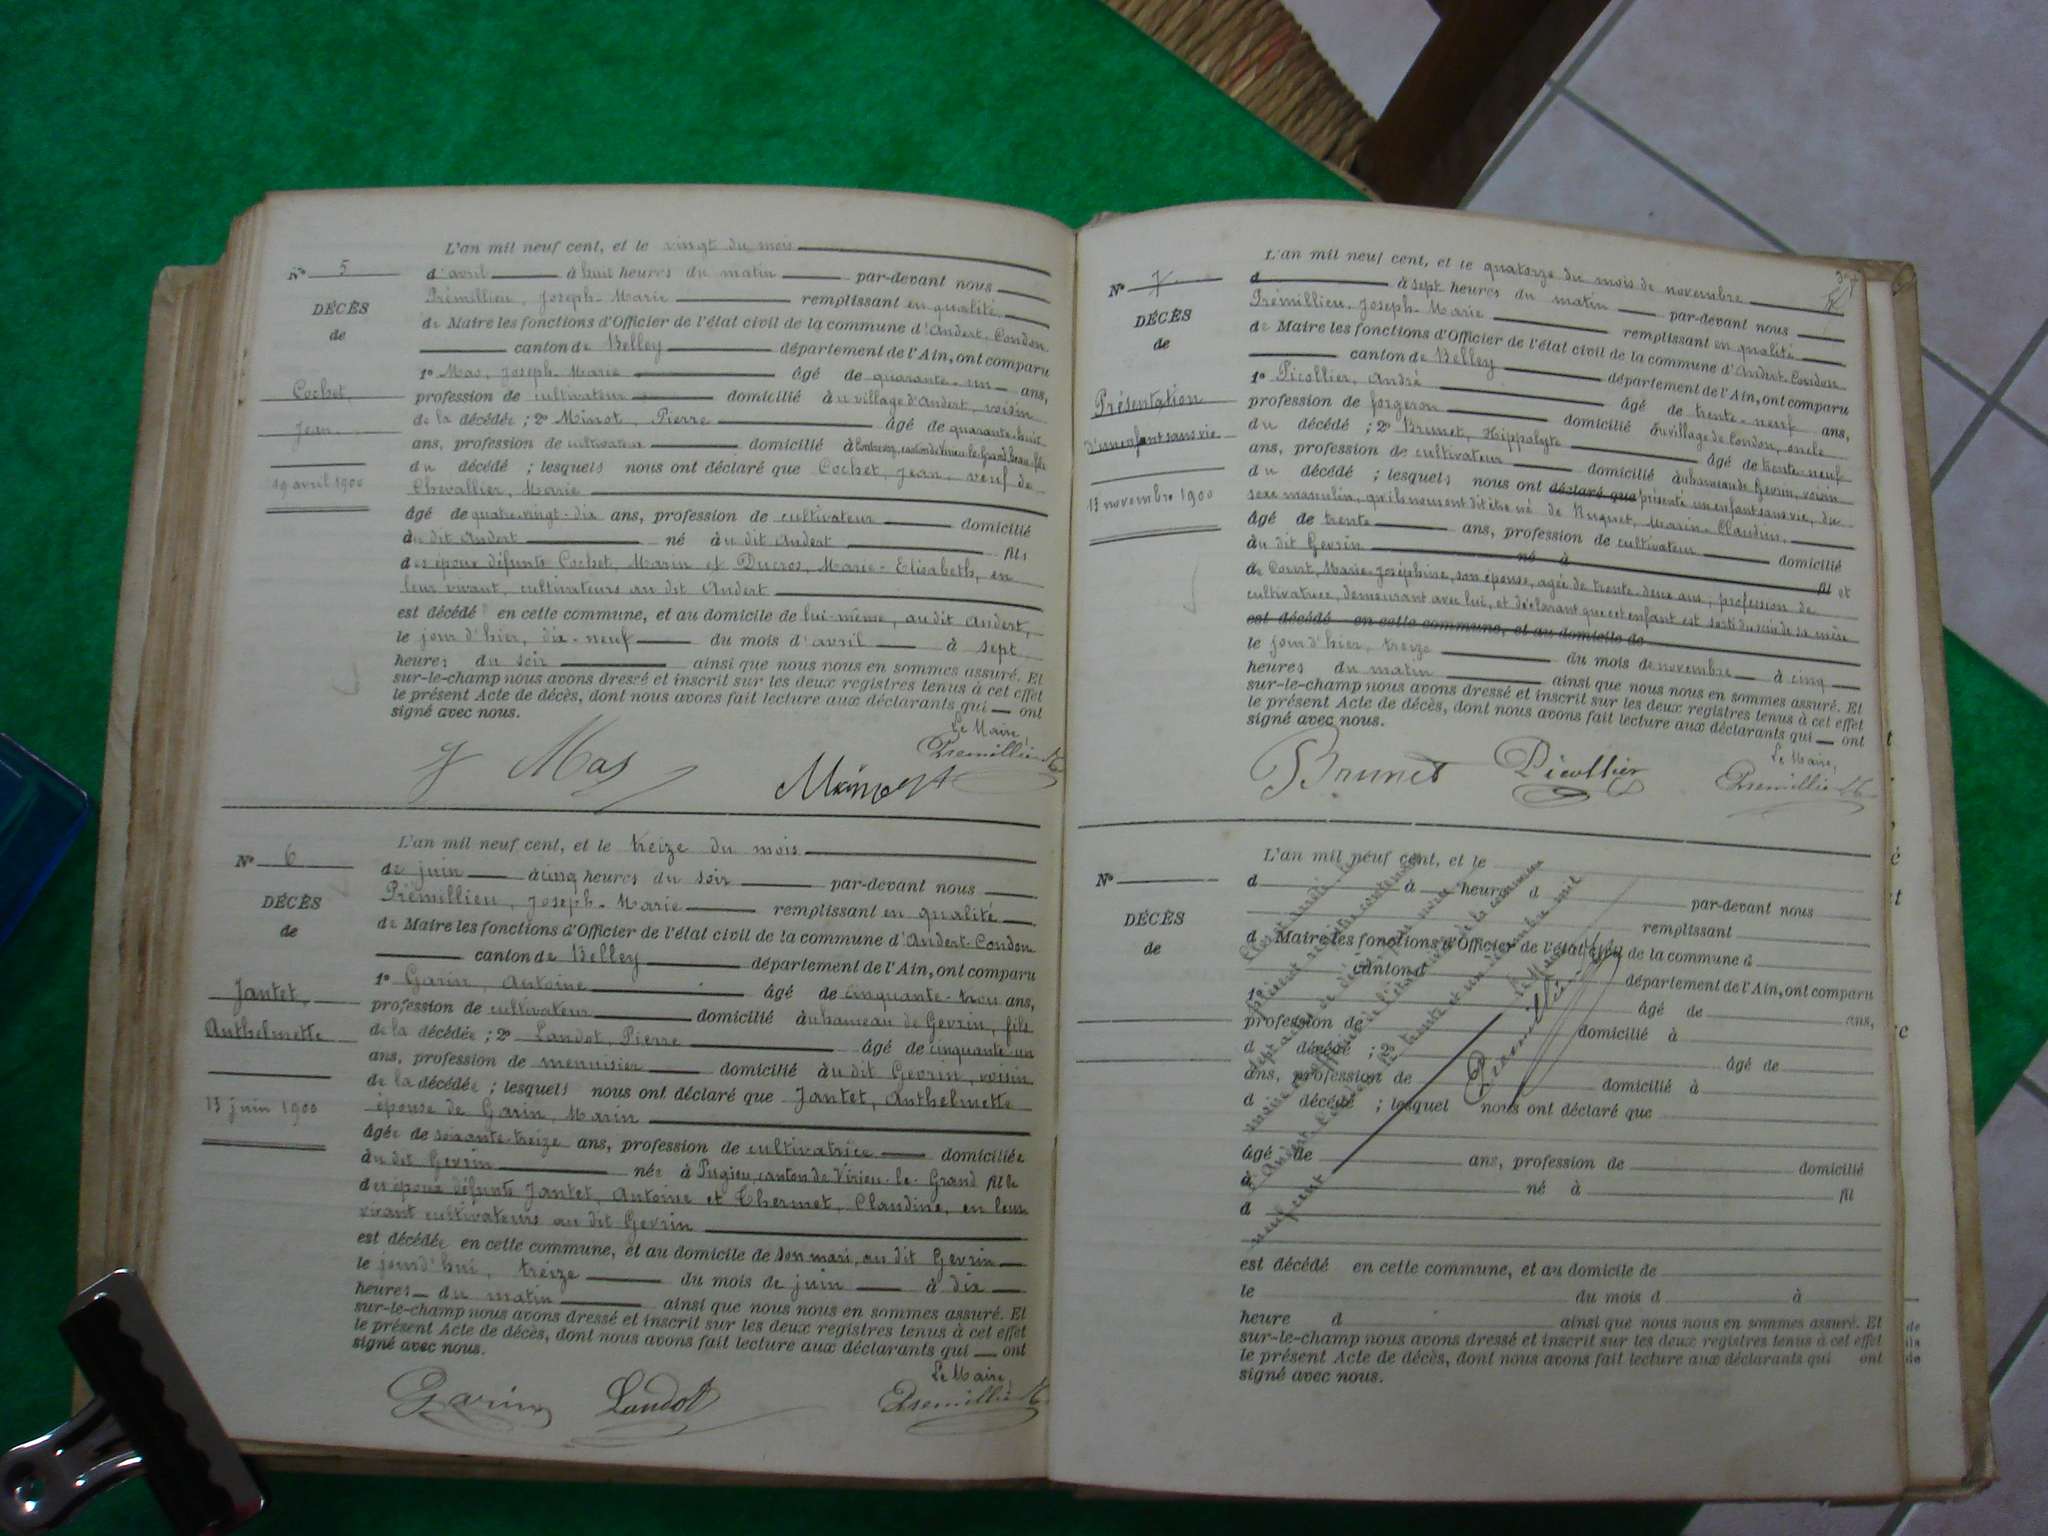 L'an mil neuf cent, et le vingt du mois
N° 5
d'avril à huit heures du matin par-devant nous
DÉCÈS
Prémillieu, Joseph-Marie remplissant en qualité
de
de Maire les fonctions d'Officier de l'état civil de la commune d'Andert-Condon
canton de Belley département de l'Ain, ont comparu
1° Mas, Joseph-Marie âgé de quarante-un ans,
Cochet
profession de cultivateur domicilié au village d'Andert, voisin
Jean
de la décédée ; 2° Minot, Pierre âgé de quarante-huit
ans, profession de cultivateur domicilié à canton de Virieu-le-Grand, beau-fils
du décédé ; lesquels nous ont déclaré que Cochet, Jean, veuf de
19 avril 1900
Chevallier, Marie
âgé de quatre-vingt-dix ans, profession de cultivateur domicilié
au dit Andert né au dit Andert fils
des époux défunts Cochet, Marin et Ducros, Marie-Elisabeth, en
leur vivant, cultivateurs au dit Andert
est décédé en cette commune, et au domicile de lui-même, au dit Andert,
le jour d'hier, dix-neuf du mois d'avril à sept
heures du soir ainsi que nous nous en sommes assuré. Et
sur-le-champ nous avons dressé et inscrit sur les deux registres tenus à cet effet
le présent Acte de décès, dont nous avons fait lecture aux déclarants qui ont
signé avec nous.
Le Maire,
J Mas Minot Premillieu
L'an mil neuf cent, et le treize du mois
N° 6
de juin à cinq heures du soir par-devant nous
DÉCÈS
Prémillieu, Joseph-Marie remplissant en qualité
de
de Maire les fonctions d'Officier de l'état civil de la commune d'Andert-Condon
canton de Belley département de l'Ain, ont comparu
Jantet,
1° Garin, Antoine âgé de cinquante-trois ans,
profession de cultivateur domicilié au hameau de Gevrin, fils
Anthelmette
de la décédée ; 2° Landot, Pierre âgé de cinquante-un
ans, profession de menuisier domicilié au dit Gevrin, voisin
de la décédée ; lesquels nous ont déclaré que Jantet, Anthelmette
13 juin 1900
épouse de Garin, Marin
âgée de soixante-treize ans, profession de cultivatrice domiciliée
au dit Gevrin née à Pugieu, canton de Virieu-le-Grand fille
des époux défunts Jantet, Antoine et Thermet, Claudine, en leur
vivant cultivateurs au dit Gevrin
est décédée en cette commune, et au domicile de son mari, au dit Gevrin
le jourd'hui, treize du mois de juin à dix
heures du matin ainsi que nous nous en sommes assuré. Et
sur-le-champ nous avons dressé et inscrit sur les deux registres tenus à cet effet
le présent Acte de décès, dont nous avons fait lecture aux déclarants qui ont
signé avec nous.
Le Maire,
Garin Landot Premillieu
L'an mil neuf cent, et le quatorze du mois de novembre
N° 7
d à sept heures du matin par-devant nous
DÉCÈS
Prémillieu, Joseph-Marie remplissant en qualité
de
de Maire les fonctions d'Officier de l'état civil de la commune d'Andert-Condon
canton de Belley département de l'Ain, ont comparu
Présentation
1° Picollier, André âgé de trente-neuf ans,
profession de forgeron domicilié au village de Condon, oncle
d'un enfant sans vie
du décédé ; 2° Brunet, Hippolyte âgé de trente-neuf
ans, profession de cultivateur domicilié au hameau de Gevrin, voisin
du décédé ; lesquels nous ont déclaré que présenté un enfant sans vie, du
13 novembre 1900
sexe masculin, qu'ils nous ont dit être né de Huguet, Marin-Claudius,
âgé de trente ans, profession de cultivateur domicilié
au dit Gevrin né à fil et
de Couvet, Marie-Joséphine, son épouse, agée de trente-deux ans, profession de
cultivatrice, demeurant avec lui, et déclarant que cet enfant est sorti du sein de sa mère
est décédé en cette commune, et au domicile de
le jour d'hier, treize du mois de novembre à cinq
heures du matin ainsi que nous nous en sommes assuré. Et
sur-le-champ nous avons dressé et inscrit sur les deux registres tenus à cet effet
le présent Acte de décès, dont nous avons fait lecture aux déclarants qui ont
signé avec nous.
Le Maire,
Brunet Picollier Premillieu
L'an mil neuf cent, et le
N°
d à heure d par-devant nous
DÉCÈS
remplissant
de
d Maire les fonctions d'Officier de l'état civil de la commune d
canton d département de l'Ain, ont comparu
1° âgé de ans,
profession de domicilié à
d décédé ; 2° âgé de
ans, profession de domicilié à
d décédé ; lesquel nous ont déclaré que
âgé de ans, profession de domicilié
à né à fil
d
est décédé en cette commune, et au domicile de
le du mois d à
heure d ainsi que nous nous en sommes assuré. Et
sur-le-champ nous avons dressé et inscrit sur les deux registres tenus à cet effet
le présent Acte de décès, dont nous avons fait lecture aux déclarants qui ont
signé avec nous.
Clos et arrêté le
présent registre contenant
sept actes de décès, par nous
maire officier de l'état civil de la commune
d'Andert-Condon, le trente et un décembre mil
neuf cent
Le Maire
Premillieu